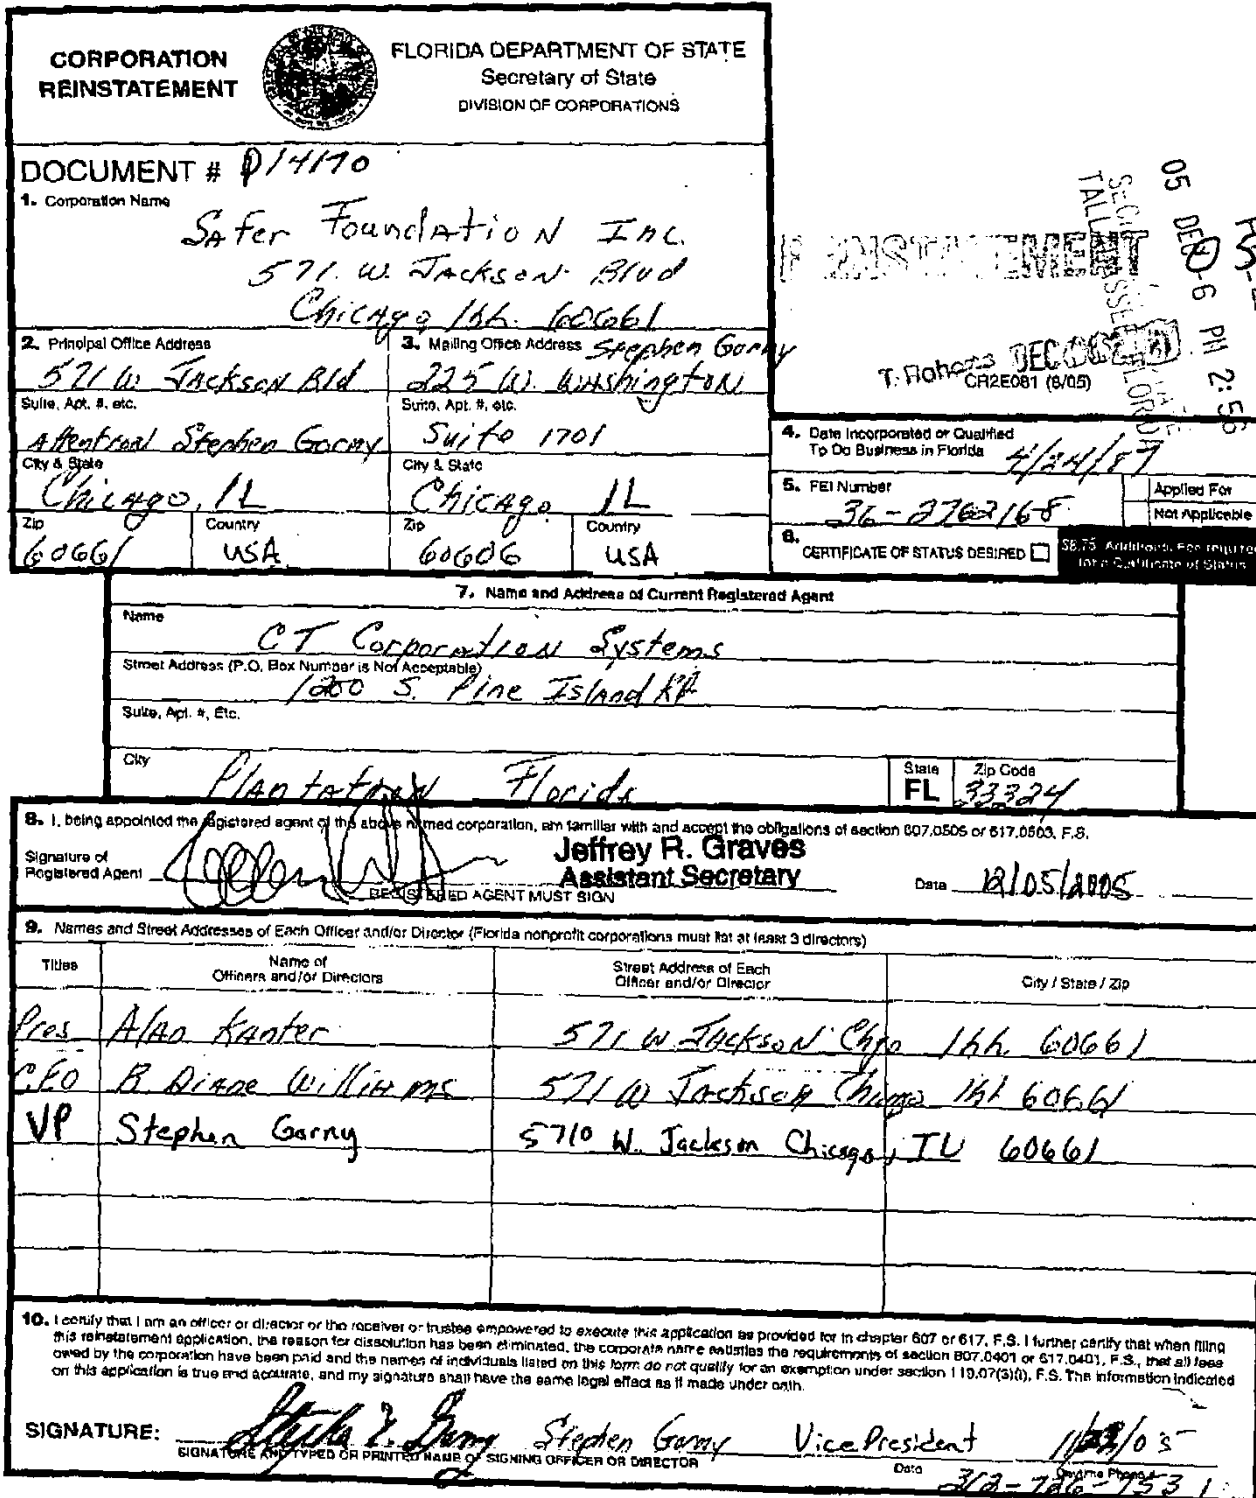 CORPORATION
REINSTATEMENT
FLORIDA DEPARTMENT OF STATE
Secretary of State
DIVISION OF CORPORATIONS
DOCUMENT # P14170
1. Corporation Name
Safer Foundation Inc.
571 W. Jackson Blvd
Chicago Ill. 60661
REINSTATEMENT
05 DEC -6 PM 2:56
T. Roberts DEC
CR2E081 (8/05)
2. Principal Office Address
571 W Jackson Bld
Suite, Apt. #, etc.
Attention Stephen Gorny
City & State
Chicago, IL
Zip
60661
Country
USA
3. Mailing Office Address Stephen Gorny
225 W. Washington
Suite, Apt. #, etc.
Suite 1701
City & State
Chicago IL
Zip
60606
Country
USA
4. Date Incorporated or Qualified
To Do Business in Florida 4/24/87
5. FEI Number
36-2762168
Applied For
Not Applicable
6.
CERTIFICATE OF STATUS DESIRED
$8.75 Additional Fee required
for a Certificate of Status
7. Name and Address of Current Registered Agent
Name
CT Corporation Systems
Street Address (P.O. Box Number is Not Acceptable)
1200 S. Pine Island Rd
Suite, Apt. #, Etc.
City
Plantation Florida
State
FL
Zip Code
33324
8. I, being appointed the registered agent of the above named corporation, am familiar with and accept the obligations of section 607.0505 or 617.0503, F.S.
Signature of
Registered Agent
Jeffrey R. Graves
Assistant Secretary
REGISTERED AGENT MUST SIGN
Date 12/05/2005
9. Names and Street Addresses of Each Officer and/or Director (Florida nonprofit corporations must list at least 3 directors)
Titles
Name of
Officers and/or Directors
Street Address of Each
Officer and/or Director
City / State / Zip
Pres Alan Kanter 571 W Jackson Chgo Ill. 60661
CEO B Diane Williams 571 W Jackson Chicago Ill 60661
VP Stephen Gorny 5710 W. Jackson Chicago, IL 60661
10. I certify that I am an officer or director or the receiver or trustee empowered to execute this application as provided for in chapter 607 or 617, F.S. I further certify that when filing
this reinstatement application, the reason for dissolution has been eliminated, the corporate name satisfies the requirements of section 607.0401 or 617.0401, F.S., that all fees
owed by the corporation have been paid and the names of individuals listed on this form do not qualify for an exemption under section 119.07(3)(i), F.S. The information indicated
on this application is true and accurate, and my signature shall have the same legal effect as if made under oath.
SIGNATURE: Stephen Gorny Vice President
SIGNATURE AND TYPED OR PRINTED NAME OF SIGNING OFFICER OR DIRECTOR
Date
Daytime Phone #
312-726-7531